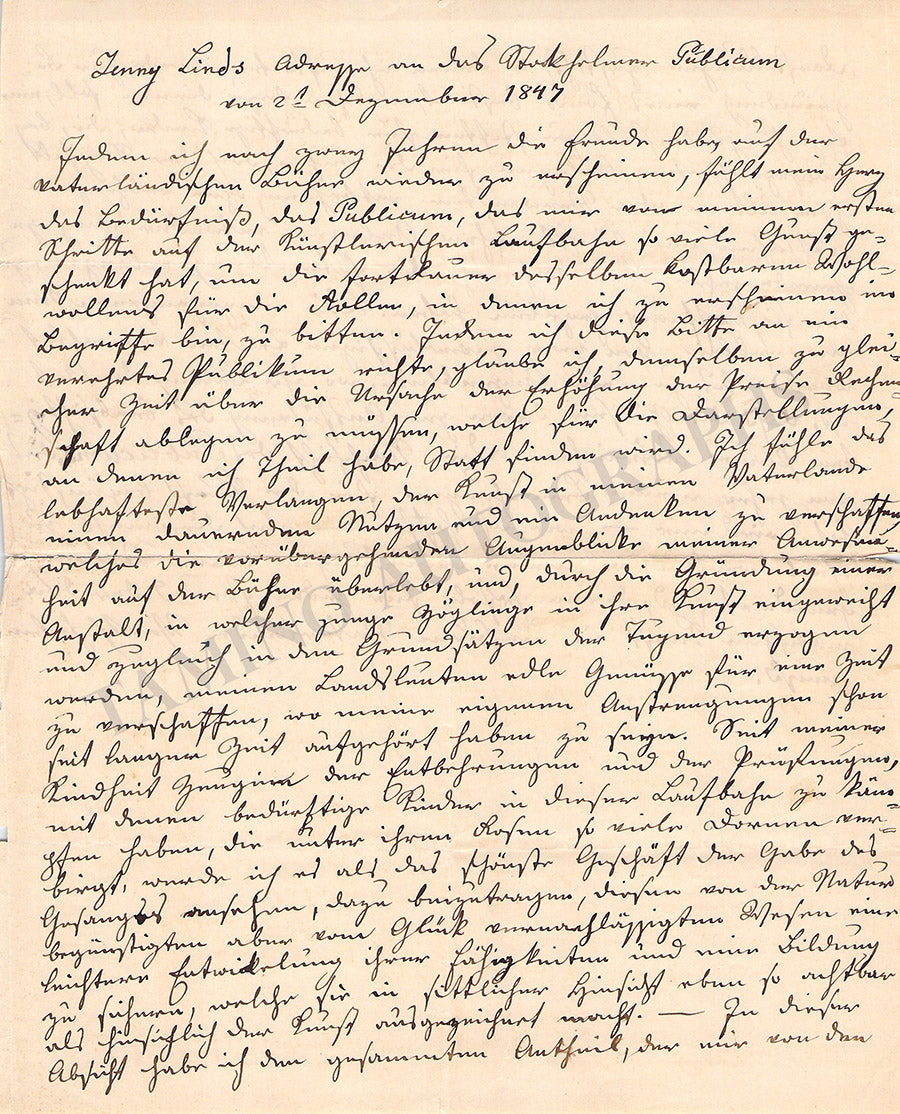 Jenny Linds Adresse an das Stokholmer Publicum
von 2t Dezember 1847
Indem ich nach zwey Jahren die Freude habe, auf der
vaterländischen Bühne wieder zu erscheinen, fühlt mein Herz
das Bedürfniß, das Publicum, das mir von meinen ersten
Schritte auf der künstlerischen Laufbahn so viele Gunst ge-
schenkt hat, um die Fortdauer desselben kostbaren Wohl-
wollens für die Rollen, in denen ich zu erscheinen im
Begriffe bin, zu bitten. Indem ich diese Bitte an ein
verehrtes Publikum richte, glaube ich, demselben zu glei-
cher Zeit über die Ursache der Erhöhung der Preise Rechen-
schaft ablegen zu müssen, welche für die Darstellungen,
an denen ich Theil habe, Statt finden wird. Ich fühle das
lebhafteste Verlangen, der Kunst in meinen Vaterlande
einen dauernden Nutzen und ein Andenken zu verschaffen,
welches die vorübergehenden Augenblicke meiner Anwesen-
heit auf der Bühne überlebt, und, durch die Gründung einer
Anstalt, in welcher junge Zöglinge in ihre Kunst eingeweiht
und zugleich in den Grundsätzen der Tugend erzogen
werden, meinen Landsleuten edle Genüsse für eine Zeit
zu verschaffen, wo meine eigenen Anstrengungen schon
seit langer Zeit aufgehört haben zu seyn. Seit meiner
Kindheit Zeugin der Entbehrungen und der Prüfungen,
mit denen bedürftige Kinder in dieser Laufbahn zu käm-
pfen haben, die unter ihren Rosen so viele Dornen ver-
birgt, werde ich es als das schönste Geschäft der Gabe des
Gesanges ansehen, dazu beizutragen, diesen von der Natur
begünstigten aber vom Glück vernachlässigten Wesen eine
leichtere Entwickelung ihrer Fähigkeiten und eine Bildung
zu sichern, welche sie in sittlicher Hinsicht eben so achtbar
als hinsichlich der Kunst ausgezeichnet macht. — In dieser
Absicht habe ich den gesammten Antheil, der mir von den
TAMINO AUTOGRAPHS